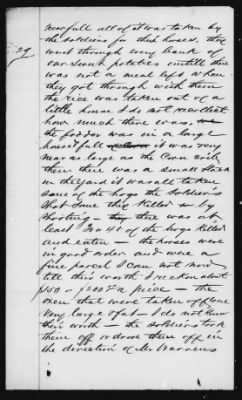 near full all of it was taken by
the Soldiers for their horses, they
went through every bank of
our Sweet potatoes untill there
was not a meal left when
they got through with them
the rice was taken out of a
little house I do not recollect
how much there was,
the fodder was in a large
house full it was very
near as large as the Corn Crib
then there was a small Stack
in the yard it was all taken
some of the hogs the Soldiers
Shot Some they Killed by
Shooting there was at
least 40 of the hogs Killed
and eaten — the horses were
in good order and were a
fine parcel I can not now
tell this worth I reckon about
$150 or $200 a piece — the
oxen that were taken off were
very large & fat — I do not know
their worth — the Soldiers took
them off or drove them off in
the direction of Mr Warrens